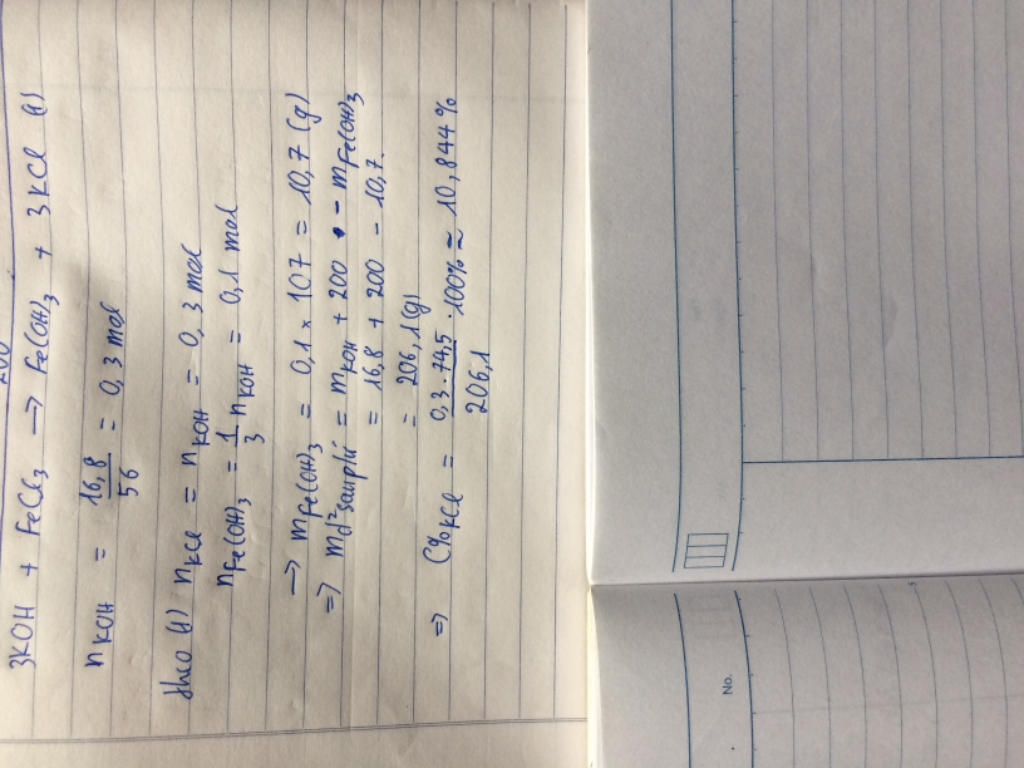 3KOH + FeCl3 → Fe(OH)3 + 3KCl (1)
nKOH = 16,8/56 = 0,3 mol
theo (1) nKCl = nKOH = 0,3 mol
nFe(OH)3 = 1/3 nKOH = 0,1 mol
→ mFe(OH)3 = 0,1 x 107 = 10,7 (g)
=> md² sau phứ = mKOH + 200 - mFe(OH)3
= 16,8 + 200 - 10,7
= 206,1 (g)
=> C%KCl = 0,3.74,5/206,1 .100% ≈ 10,844%
No.